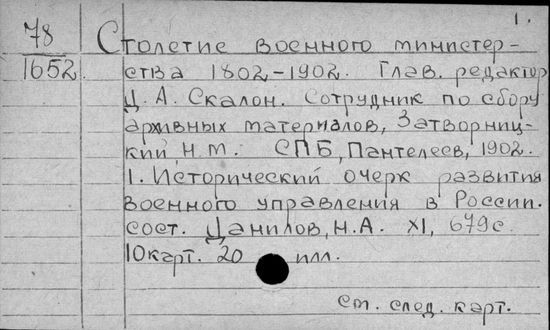 1.
78
1652
Столетие военного министер-
ства 1802-1902. Глав. редактор
Д. А. Скалон. Сотрудник по сбору
архивных материалов, Затворниц-
кий, Н.М. СПБ, Пантелеев, 1902.
1. Исторический очерк развития
военного управления в России.
сост. Данилов, Н.А. XI, 679с.
10карт. 20 илл.
см. след. карт.